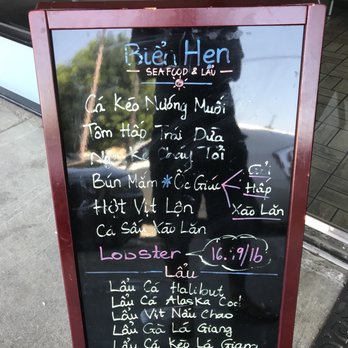 Biển Hẹn
SEAFOOD & LẨU
Cá Kéo Nướng Muối
Tôm Hấp Trái Dừa
Cháy Tỏi
Bún Mắm * Ốc Giác Gỏi
Hấp
Xào Lăn
Hột Vịt Lộn
Cá Sấu Xào Lăn
Lobster 16.99/lb
Lẩu
Lẩu Cá Halibut
Lẩu Cá Alaska Cod
Lẩu Vịt Nấu Chao
Lẩu Gà Lá Giang
Lẩu Cá Kèo Lá Giang